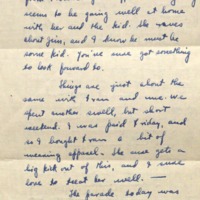 seem to be going well at home
with her and the kid. She raves
about Jim, and I know he must be
some kid. You've sure got something
to look forward to.
Things are just about the
same with Fran and me. We
spent another swell, but short
weekend. I was paid Friday, and
so I bought Fran a bit of
wearing apparel. She sure gets a
big kick out of this, and I sure
love to treat her well. —
The parade today was